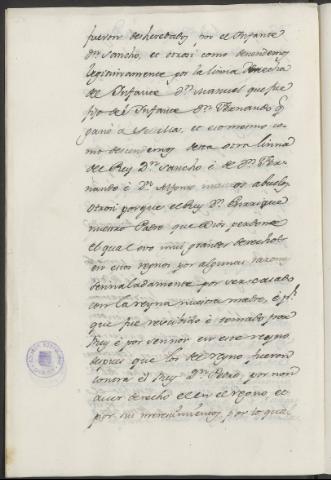 fueron desheredados por el Infante
dn. Sancho, et otrosi como desendemos
legitimamente por la linia derecha
de Infante dn. Manuel que fue
fijo del Infante Dn. Fernando q
ganó a Sevilla, et eso mesmo co
mo descendemos desta otra linna
del Rey Dn. Sancho é de Dn. Fer
nando é Dn. Alfonso nuestros abuelos
Otrosi porque el Rey Dn. Enrrique
nuestro Padre que Dios perdone
el qual ovo mui grandes derechos
en estos regnos por algunas razones
sennaladamente por ser casado
con la reyna nuestra madre, é pr.
que fue rescebido é tomado por
Rey é por sennor en este regno
depues que los de regno fueron
contra el Rey Dn. Pedro, por non
aver derecho el en el regno, et
por sus merecimientos, por lo qual